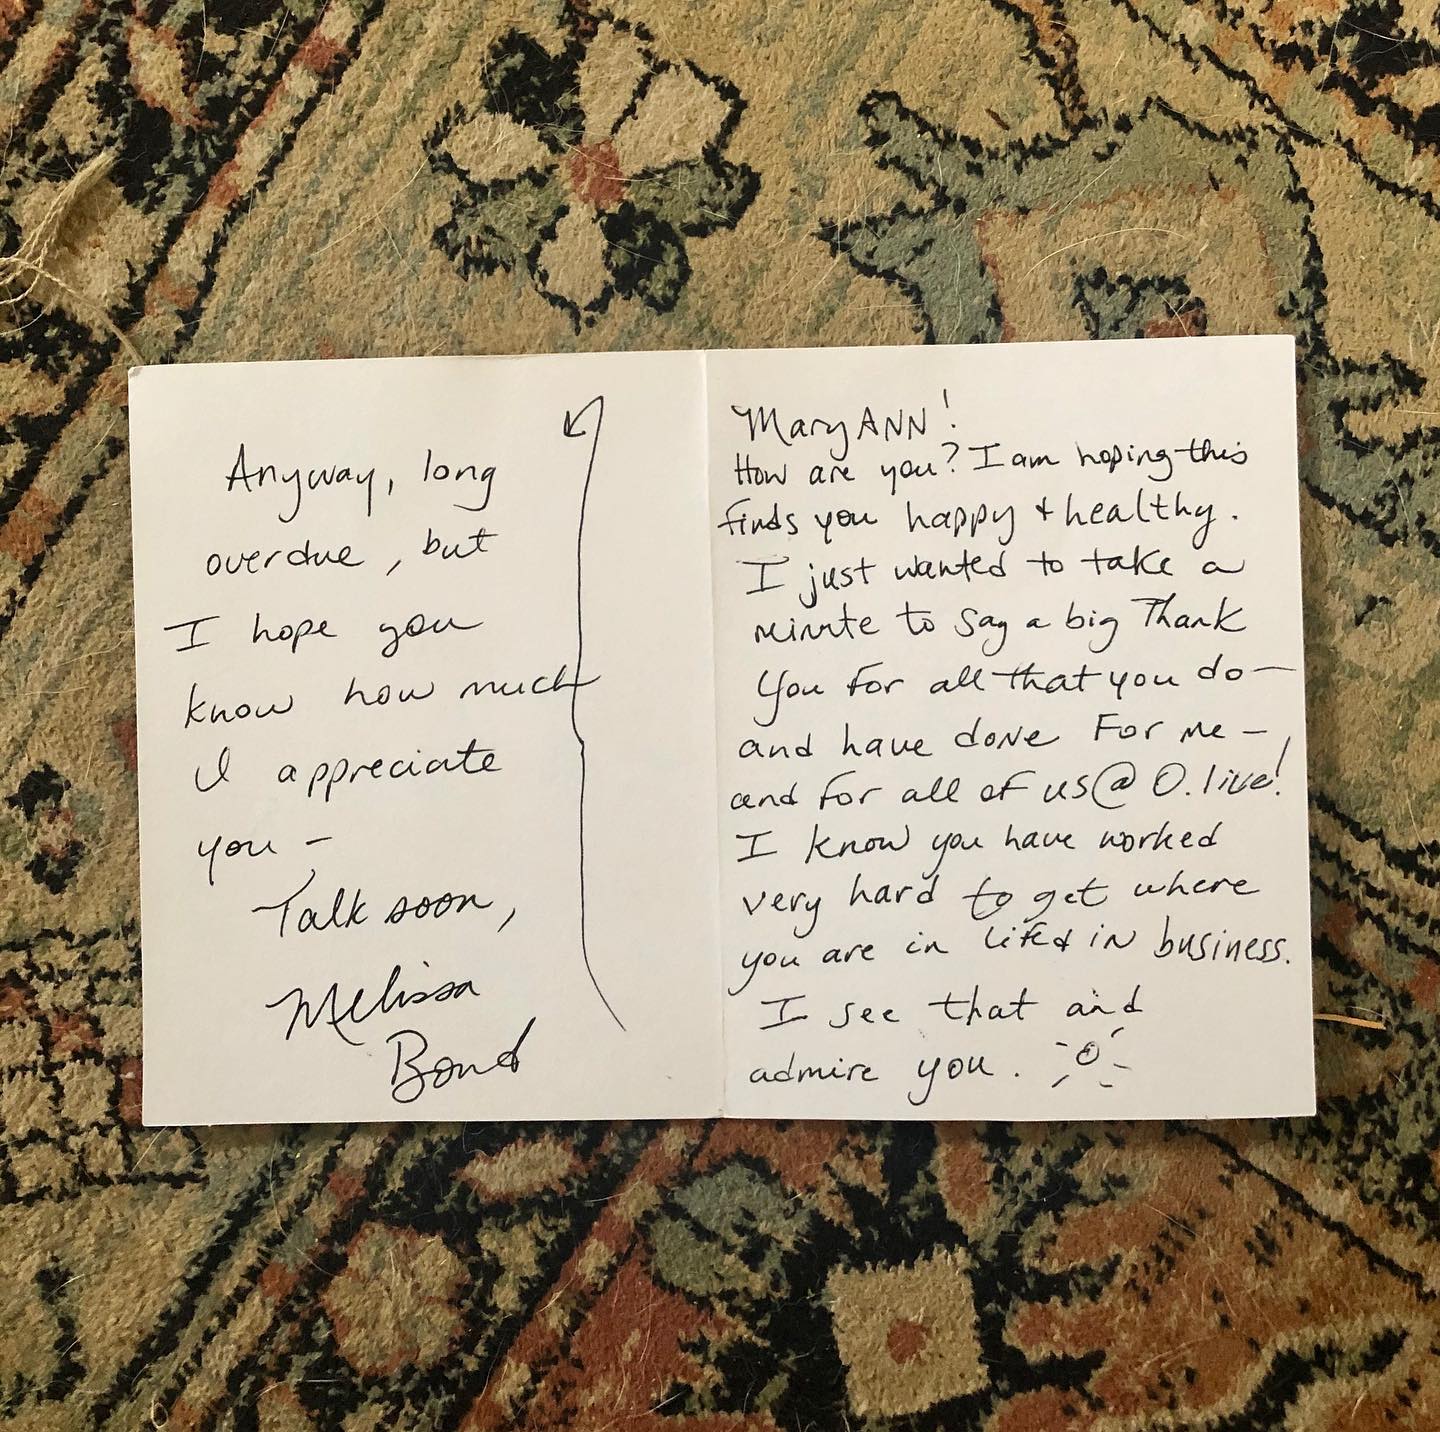 MaryANN!
How are you? I am hoping this
finds you happy + healthy.
I just wanted to take a
minute to say a big Thank
You for all that you do—
and have done For me —
and for all of us @ O.live!
I know you have worked
very hard to get where
you are in life + in business.
I see that and
admire you.
Anyway, long
overdue, but
I hope you
know how much
I appreciate
you —
Talk soon,
Melissa
Bond